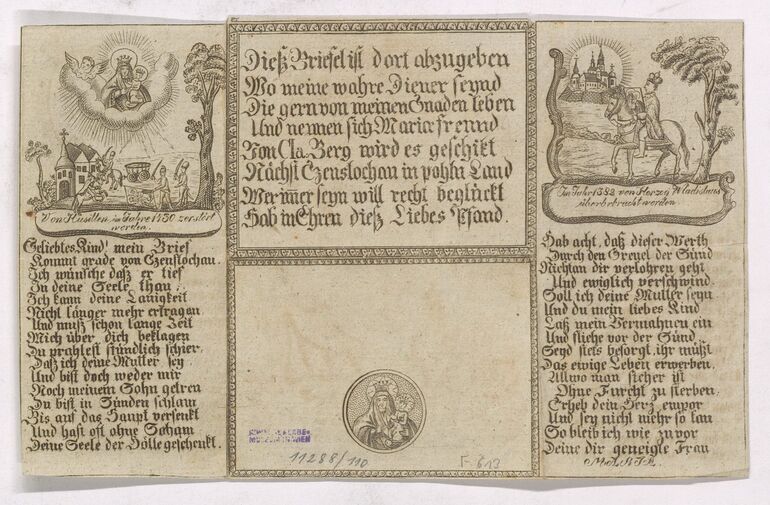 Von Husitten im Jahre 1430 zerstört
worden.
Geliebtes Kind! mein Brief
Kommt grade von Czenstochau.
Ich wünsche daß er tief
In deine Seele thau:
Ich kann deine Lauigkeit
Nicht länger mehr ertragen
Und muß schon lange Zeit
Mich über dich beklagen
Du prahlest stündlich schier,
Daß ich deine Mutter sey
Und bist doch weder mir
Noch meinem Sohn getreu
Du bist in Sünden schlam
Bis auf das Haupt versenkt
Und hast oft ohne Scham
Deine Seele der Hölle geschenkt.
Dieß Briefel ist dort abzugeben
Wo meine wahre Diener seynd
Die gern von meinen Gnaden leben
Und nennen sich Mariæ freund
Von Cla. Berg wird es geschikt
Nächst Czenstochau in pohln Land
Wer imer seyn will recht beglückt
Hab in Ehren dieß Liebes Pfand.
11288/110
F 613
Im Jahr 1382 von Herzog Wladislaus
überbrbracht worden
Hab acht, daß dieser Werth
Durch den Greuel der Sünd
Nicht an dir verlohren geht
Und ewiglich verschwind.
Soll ich deine Mutter seyn
Und du mein liebes Kind
Laß mein Vermahnen ein
Und fliehe vor der Sünd
Seyd stets besorgt, ihr müßt
Das ewige Leben erwerben,
Allwo man sicher ist
Ohne Furcht zu sterben,
Erheb dein Herz empor
Und sey nicht mehr so lau
So bleib ich wie zuvor
Deine dir geneigte Frau
M.A.R.I.A.